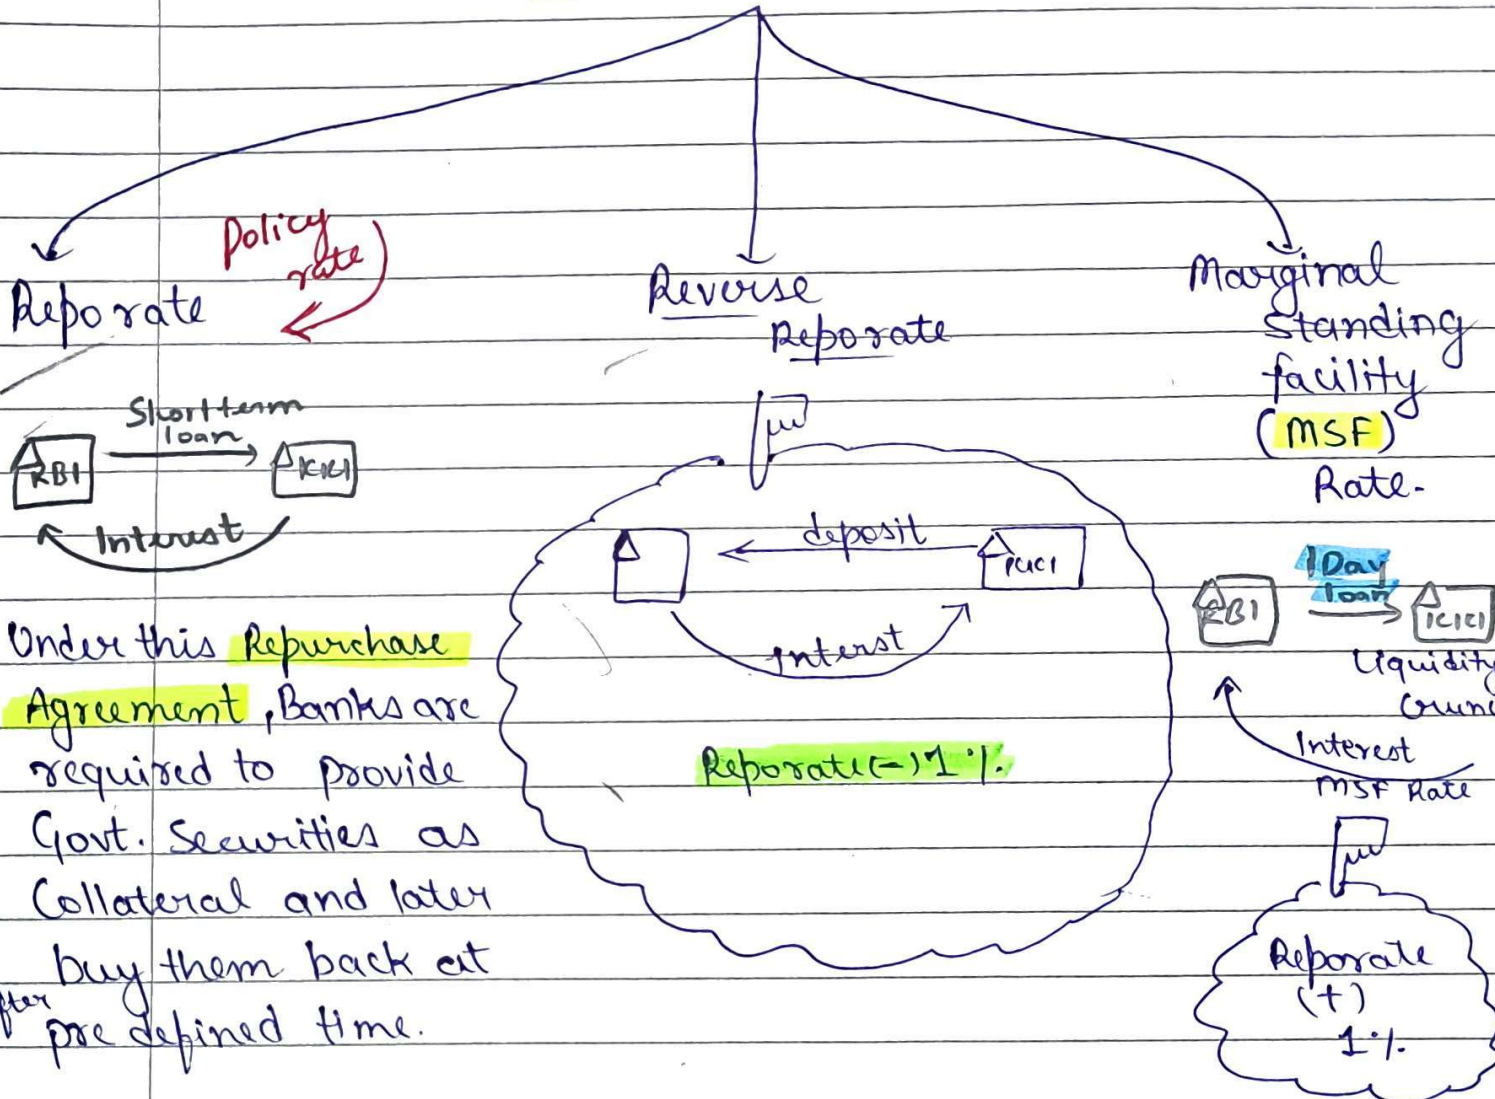 Policy
rate
Reporate
Short term
loan
RBI
ICICI
Interest
Under this Repurchase
Agreement, Banks are
required to provide
Govt. Securities as
Collateral and later
buy them back at
after
pre defined time.
Reverse
Reporate
deposit
ICICI
Interst
Reporate(-)1%.
Marginal
Standing
facility
(MSF)
Rate.
1 Day
loan
RBI
ICICI
Liquidity
Interest
MSF Rate
Reporate
(+)
1%.